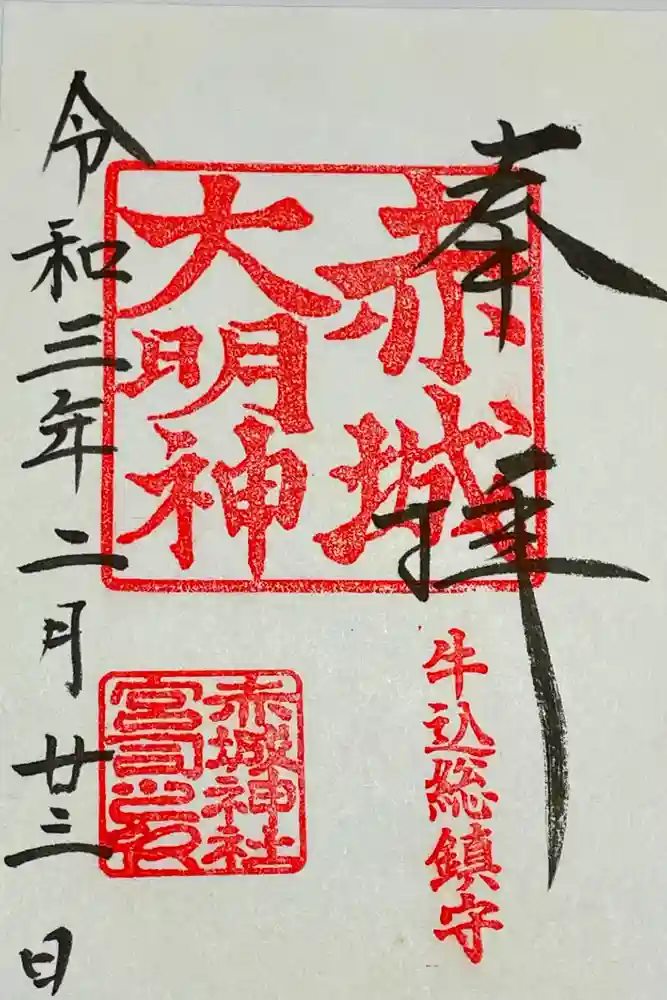 奉拝
赤城
大明神
牛込総鎮守
赤城神社
宮司之印
令和三年二月廿三日